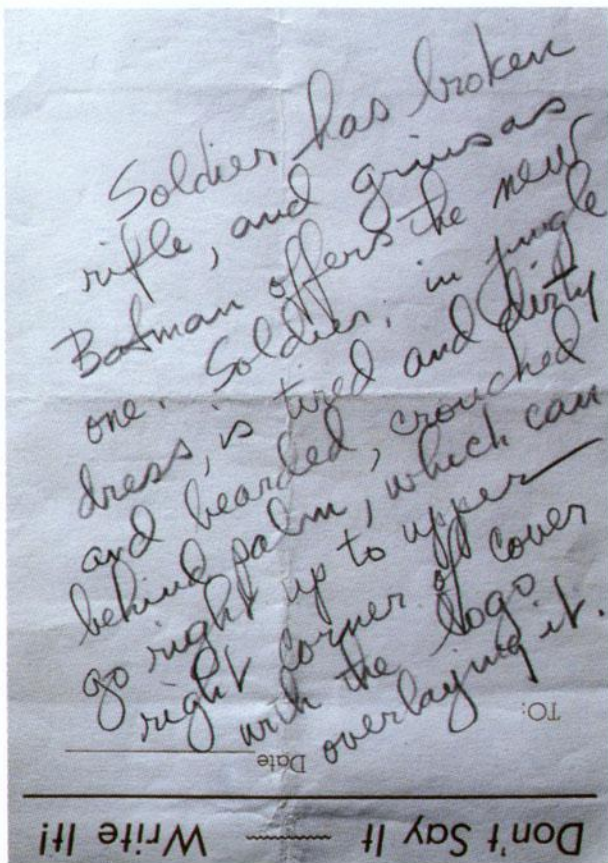 Soldier has broken
rifle, and grins as
Batman offers the new
one. Soldier, in jungle
dress, is tired and dirty
and bearded, crouched
behind palm, which can
go right up to upper
right corner of cover
with the logo
overlaying it.
TO:
Date
Don't Say It Write It!